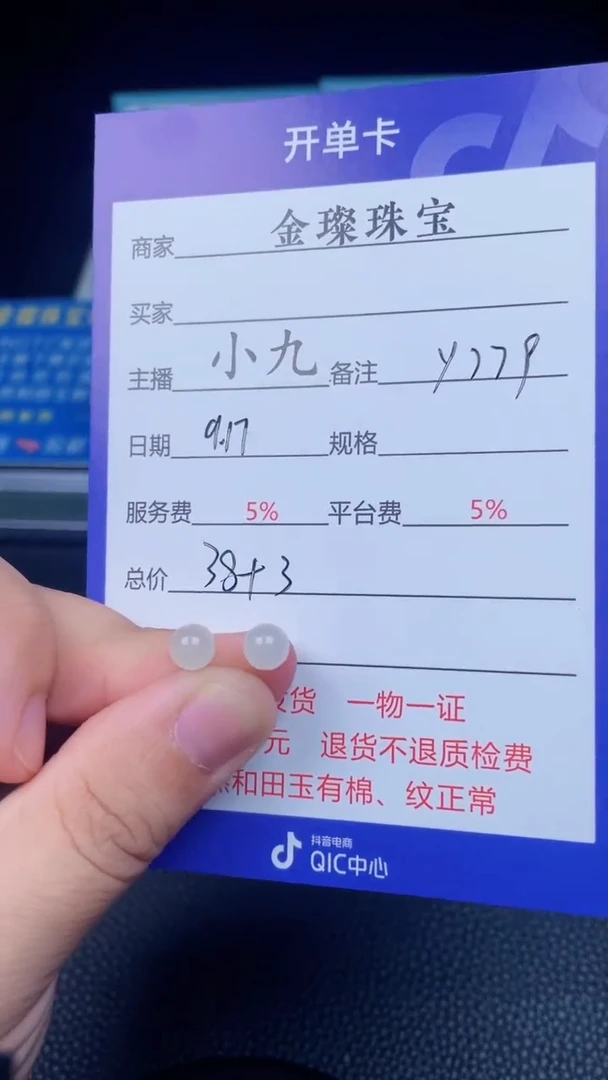 开单卡
商家 金璨珠宝
买家
主播 小九 备注 Y779
日期 9.17 规格
服务费 5% 平台费 5%
总价 38+3
发货 一物一证
元 退货不退质检费
和田玉有棉、纹正常
抖音电商
QIC中心